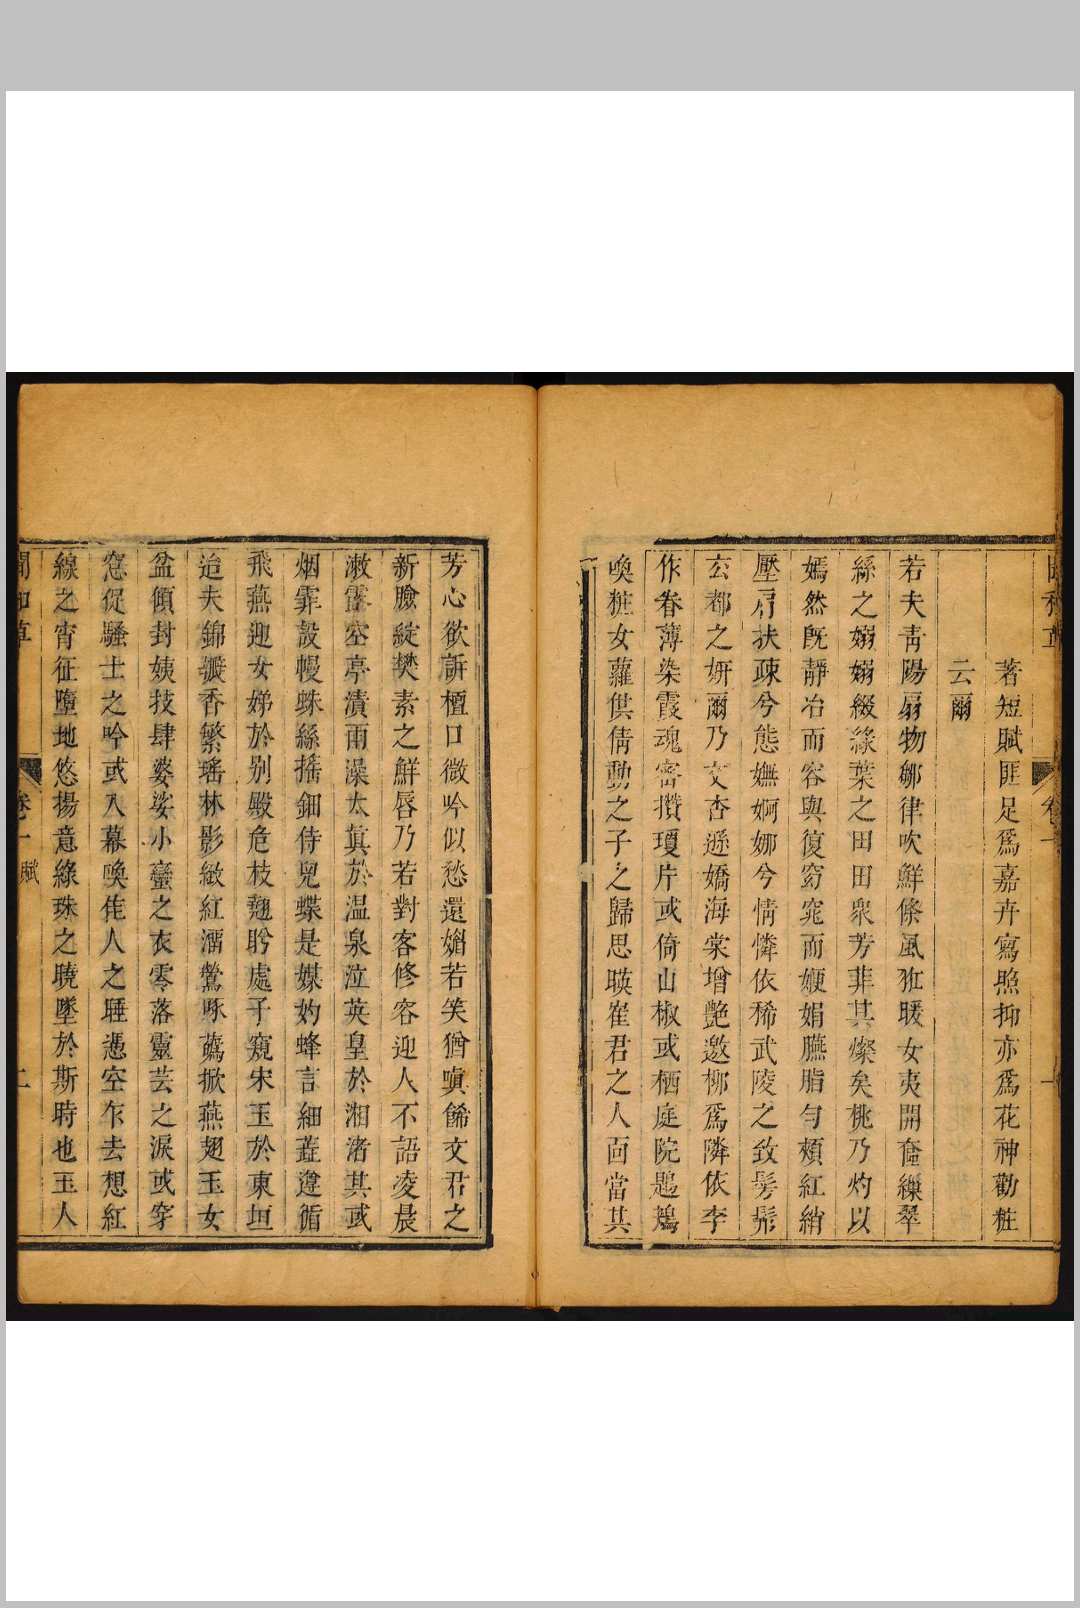 著短賦匪足爲嘉卉寫照抑亦爲花神勸粧
云爾
若夫靑陽扇物鄒律吹鮮條風狃暖女夷開奩纈翠
絲之嫋嫋綴綠葉之田田衆芳菲其燦矣桃乃灼以
嫣然旣靜冶而容與復窈窕而娉娟臙脂勻頰紅綃
壓肩扶疎兮態嫵婀娜兮情憐依稀武陵之致髣髴
玄都之妍爾乃文杏遜嬌海棠增艶邀柳爲隣依李
作眷薄染霞魂密攢瓊片或倚山椒或栖庭院
喚粧女蘿供倩動之子之歸思暎崔君之人面當其
芳心欲訴檀口微吟似愁還媚若笑猶嗔餙文君之
新臉綻樊素之鮮唇乃若對客修容迎人不語凌晨
漱露空亭漬雨澡太眞於温泉泣英皇於湘渚其或
烟霏設幔蛛絲搖鈿侍兒蝶是媒妁蜂言細蓋遶循
飛燕迎女娣於別殿危枝翹盻處子窺宋玉於東垣
迨夫錦瓣香繁瑤林影緻紅濕鶯啄蔫掀燕翅玉女
盆傾封姨技肆婆娑小蠻之衣零落靈芸之淚或穿
窓促騷士之吟或入幕喚佳人之睡憑空乍去想紅
線之宵征墮地悠揚意綠珠之曉墜於斯時也玉人
卷一
賦
二